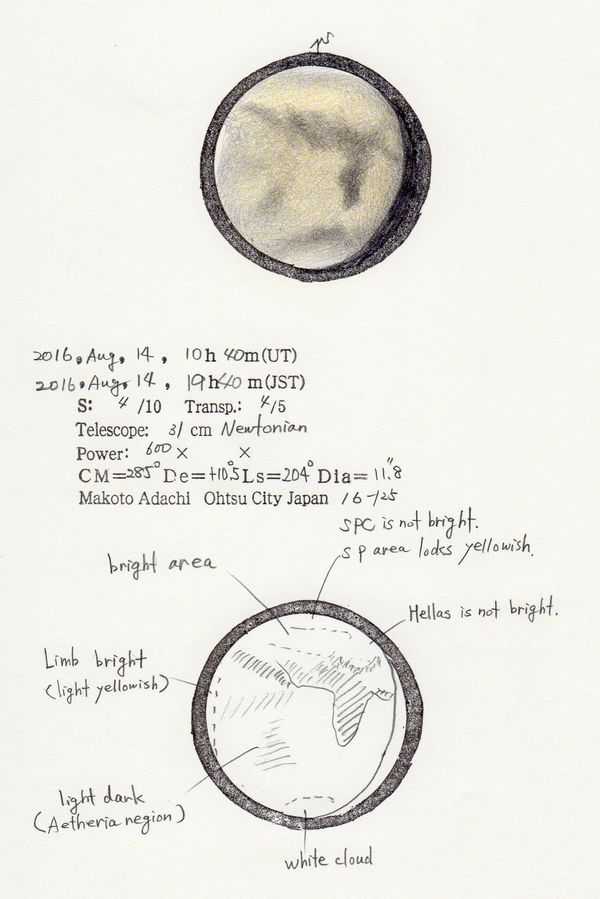 2016, Aug, 14, 10h 40m(UT)
2016, Aug, 14, 19h40 m(JST)
S: 4 /10 Transp.: 4/5
Telescope: 31 cm Newtonian
Power: 600 × ×
CM=285° De=+10.5° Ls=204° Dia= 11.8"
Makoto Adachi Ohtsu City Japan 16-125
SPC is not bright.
SP area looks yellowish.
bright area
Hellas is not bright.
Limb bright
(light yellowish)
light dark
(Aetheria region)
white cloud